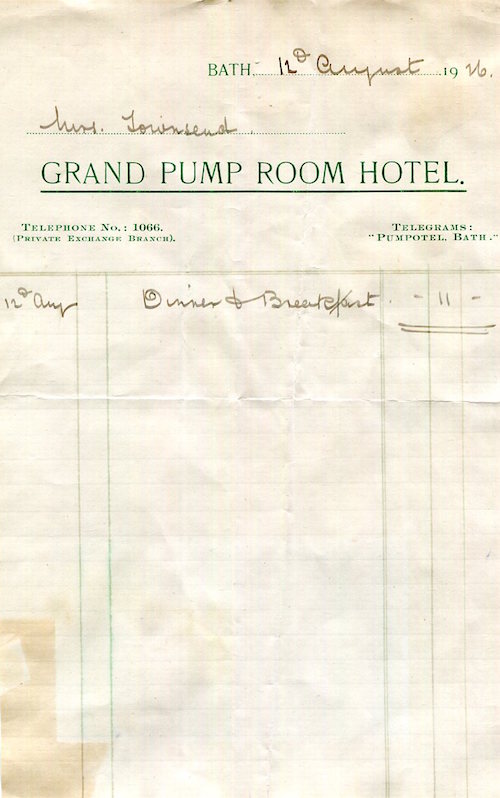 BATH, 12d August 1926.
Mrs. Townsend.
GRAND PUMP ROOM HOTEL.
TELEPHONE NO.: 1066.
(PRIVATE EXCHANGE BRANCH).
TELEGRAMS:
"PUMPOTEL, BATH."
12d Aug Dinner & Breakfast. - 11 -